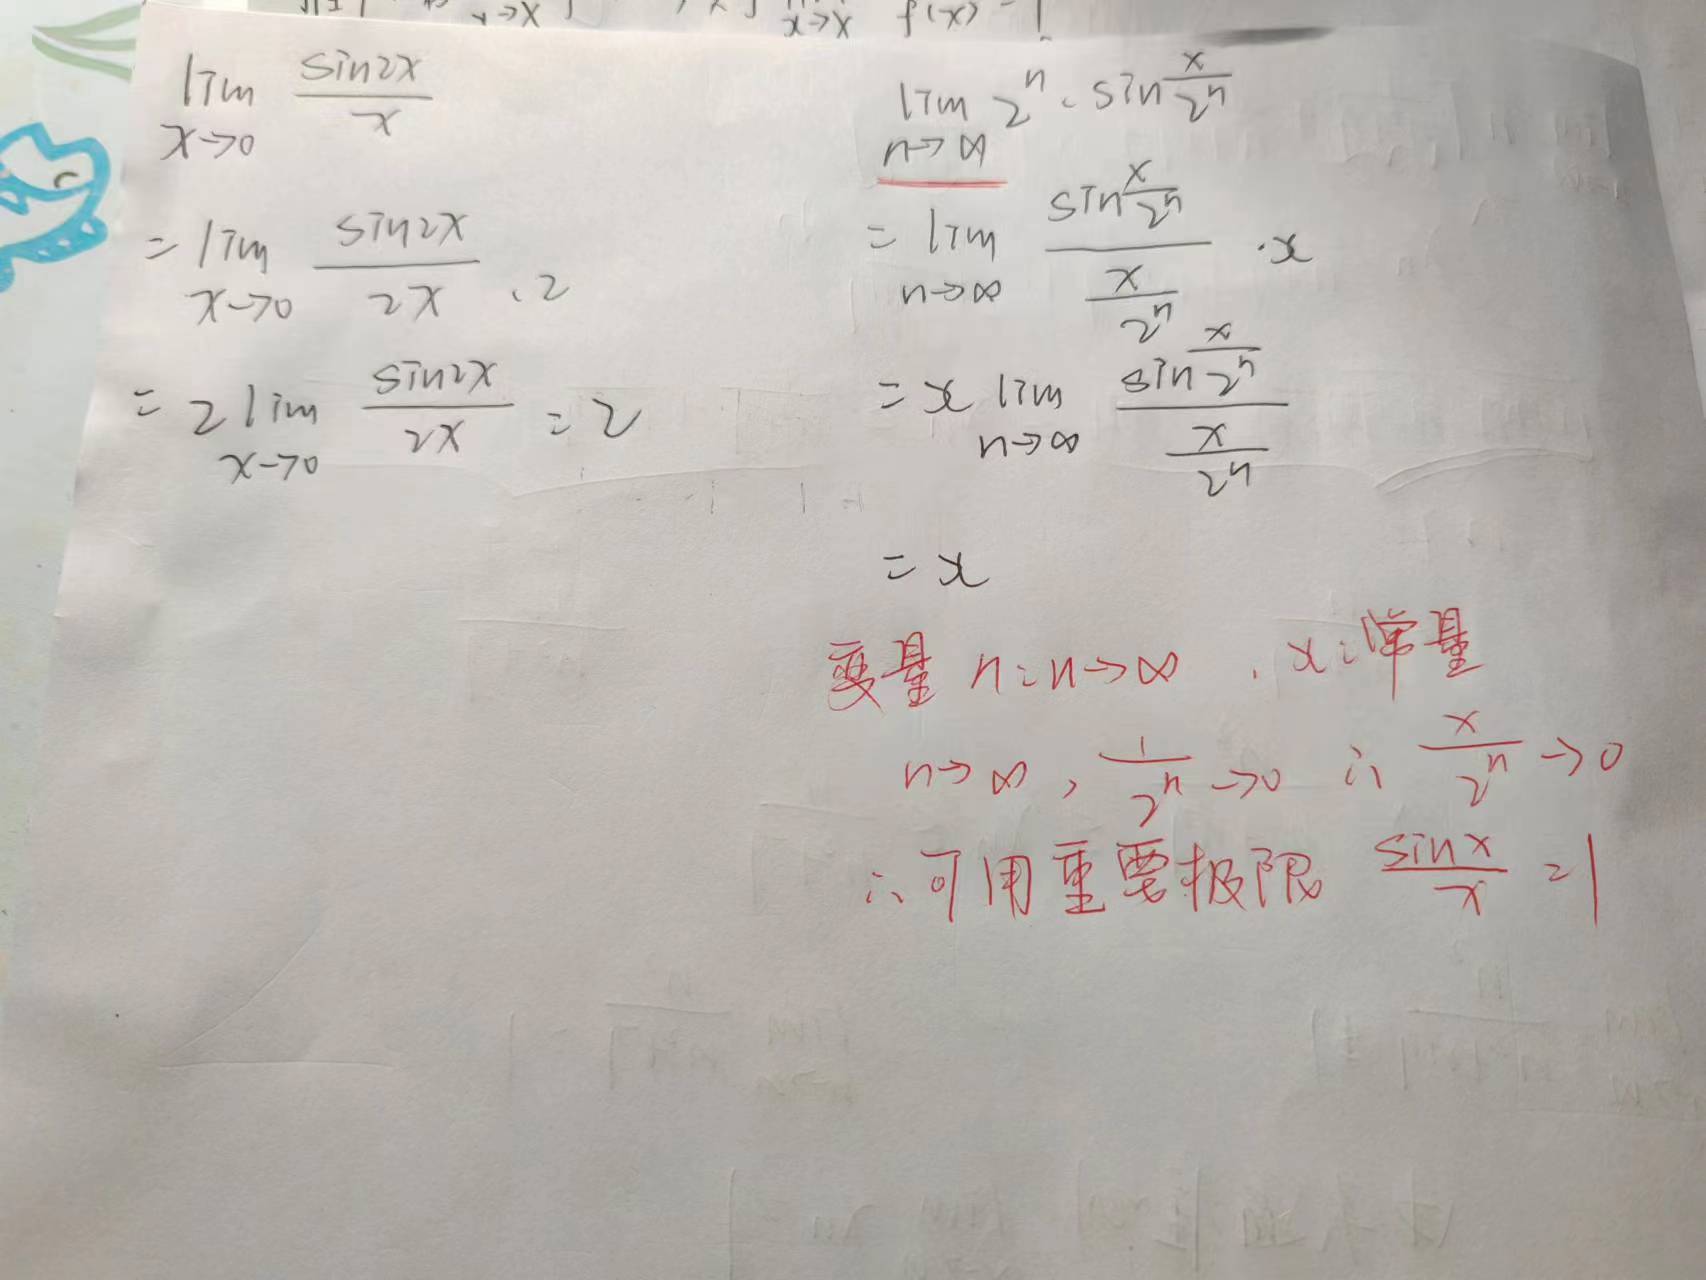 x→x
x→x f(x) = 1
lim x→0 sin2x/x
= lim x→0 sin2x/2x · 2
= 2 lim x→0 sin2x/2x = 2
lim n→∞ 2^n · sin x/2^n
= lim n→∞ (sin x/2^n)/(x/2^n) · x
= x lim n→∞ (sin x/2^n)/(x/2^n)
= x
变量 n: n→∞ , x: 常量
n→∞, 1/2^n →0 ∴ x/2^n →0
∴ 可用重要极限 sinx/x = 1